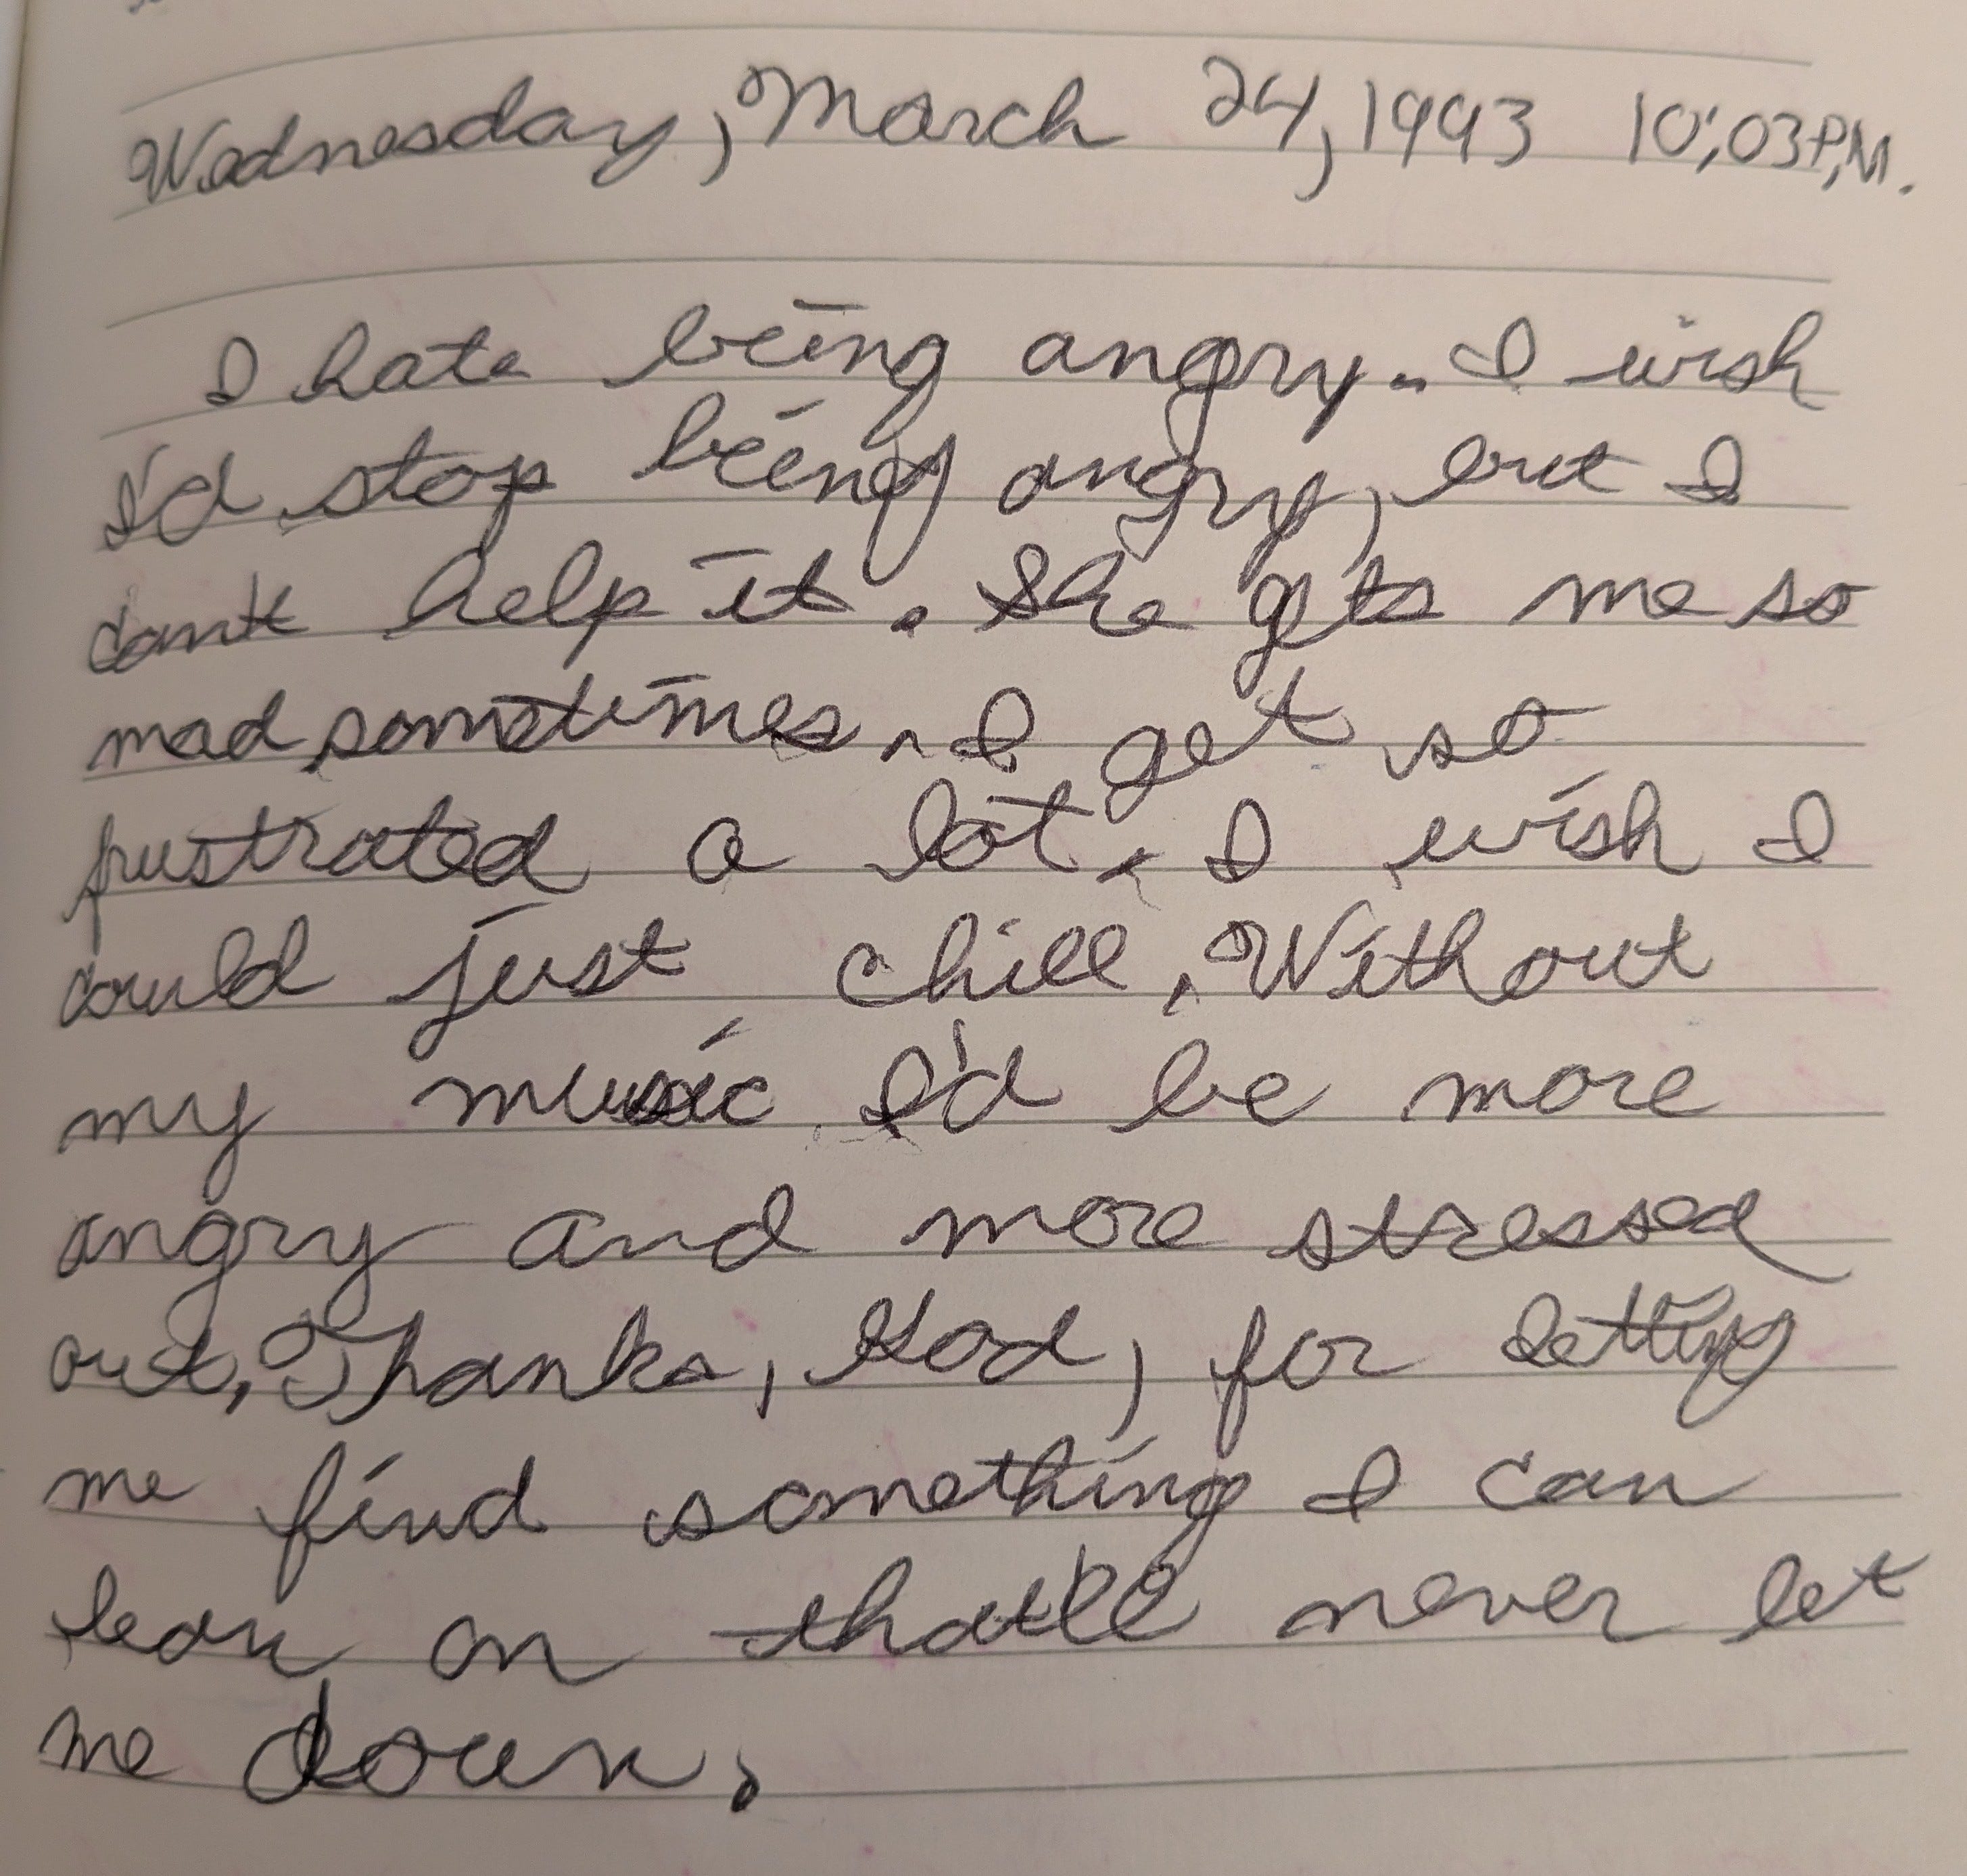 Wednesday, March 24, 1993 10:03 P.M.
I hate being angry. I wish
I'd stop being angry, but I
can't help it. She gets me so
mad sometimes. I get so
fustrated a lot. I wish I
could just chill. Without
my music I'd be more
angry and more stressed
out. Thanks, God, for letting
me find something I can
lean on that'll never let
me down.